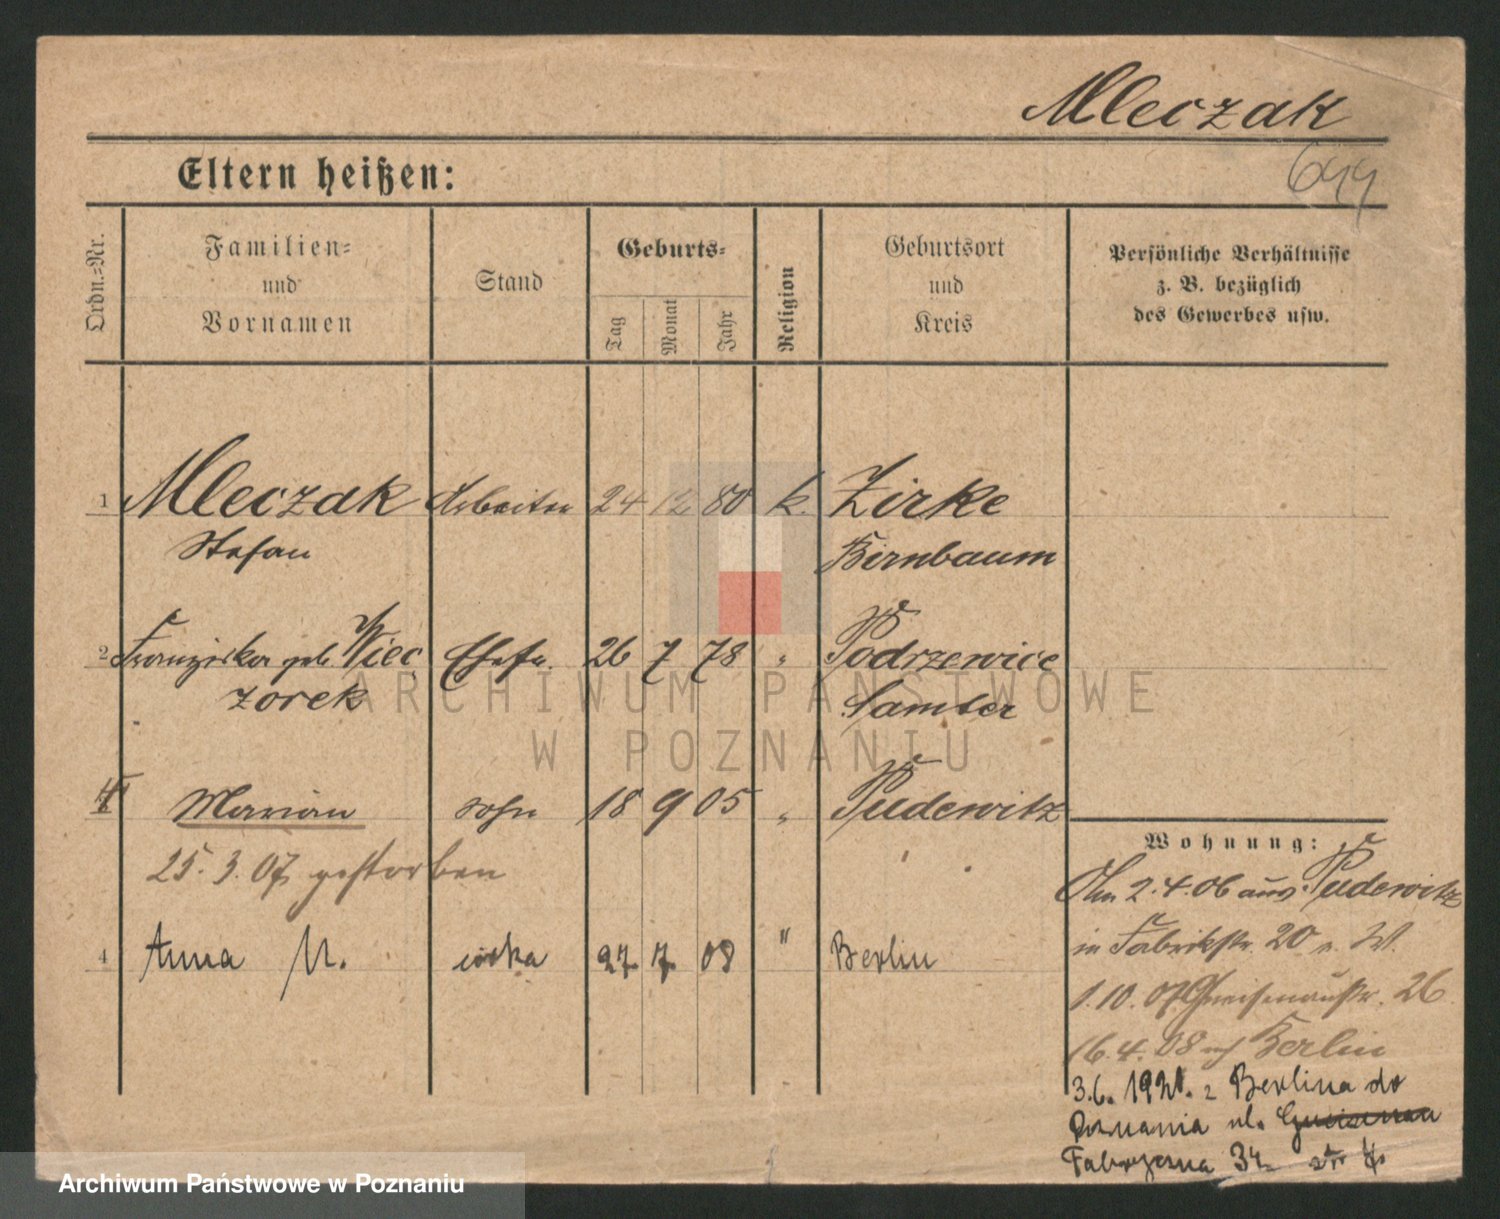 Mleczak
Eltern heißen:
Ordn.=Nr.
Familien=
und
Vornamen
Stand
Geburts=
Tag
Monat
Jahr
Religion
Geburtsort
und
Kreis
Persönliche Verhältnisse
z. B. bezüglich
des Gewerbes usw.
1 Mleczak Arbeiter 24 12 80 k. Zirke
Stefan Birnbaum
2 Franziska geb. Wiec Ehefr. 26 7 78 " Podrzewice
zorek Samter
Marian Sohn 18 9 05 " Pudewitz
25. 3. 07 gestorben
4 Anna M. córka 27. 7. 08 " Berlin
Wohnung:
2.4.06 aus Pudewitz
in Fabrikstr. 20 b. W.
1.10.07 Gneisenaustr. 26
16.4.08 nach Berlin
3.6. 1921. z Berlina do
Poznania ul. Gneisenau
Fabryczna 34
ARCHIWUM PAŃSTWOWE
W POZNANIU
Archiwum Państwowe w Poznaniu